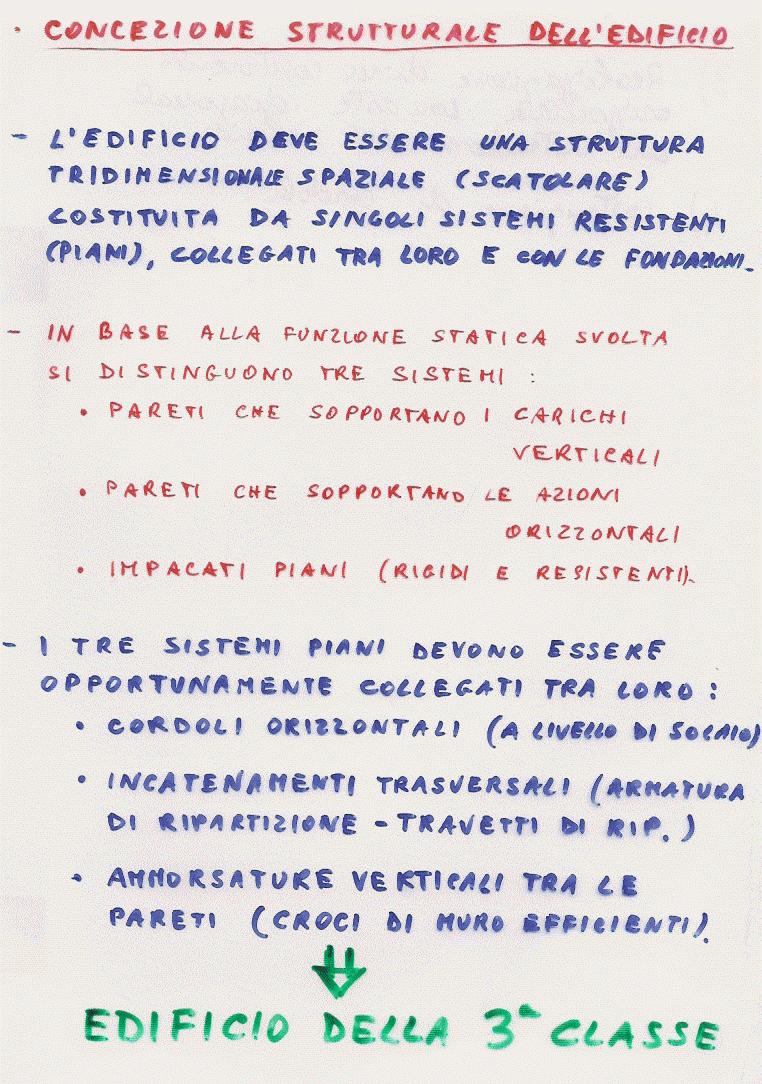 • CONCEZIONE STRUTTURALE DELL'EDIFICIO
- L'EDIFICIO DEVE ESSERE UNA STRUTTURA
TRIDIMENSIONALE SPAZIALE (SCATOLARE)
COSTITUITA DA SINGOLI SISTEMI RESISTENTI
(PIANI), COLLEGATI TRA LORO E CON LE FONDAZIONI.
- IN BASE ALLA FUNZIONE STATICA SVOLTA
SI DISTINGUONO TRE SISTEMI :
• PARETI CHE SOPPORTANO I CARICHI
VERTICALI
• PARETI CHE SOPPORTANO LE AZIONI
ORIZZONTALI
• IMPACATI PIANI (RIGIDI E RESISTENTI).
- I TRE SISTEMI PIANI DEVONO ESSERE
OPPORTUNAMENTE COLLEGATI TRA LORO :
• CORDOLI ORIZZONTALI (A LIVELLO DI SOLAIO)
• INCATENAMENTI TRASVERSALI (ARMATURA
DI RIPARTIZIONE - TRAVETTI DI RIP. )
• AMMORSATURE VERTICALI TRA LE
PARETI (CROCI DI MURO EFFICIENTI).
⇓
EDIFICIO DELLA 3ª CLASSE